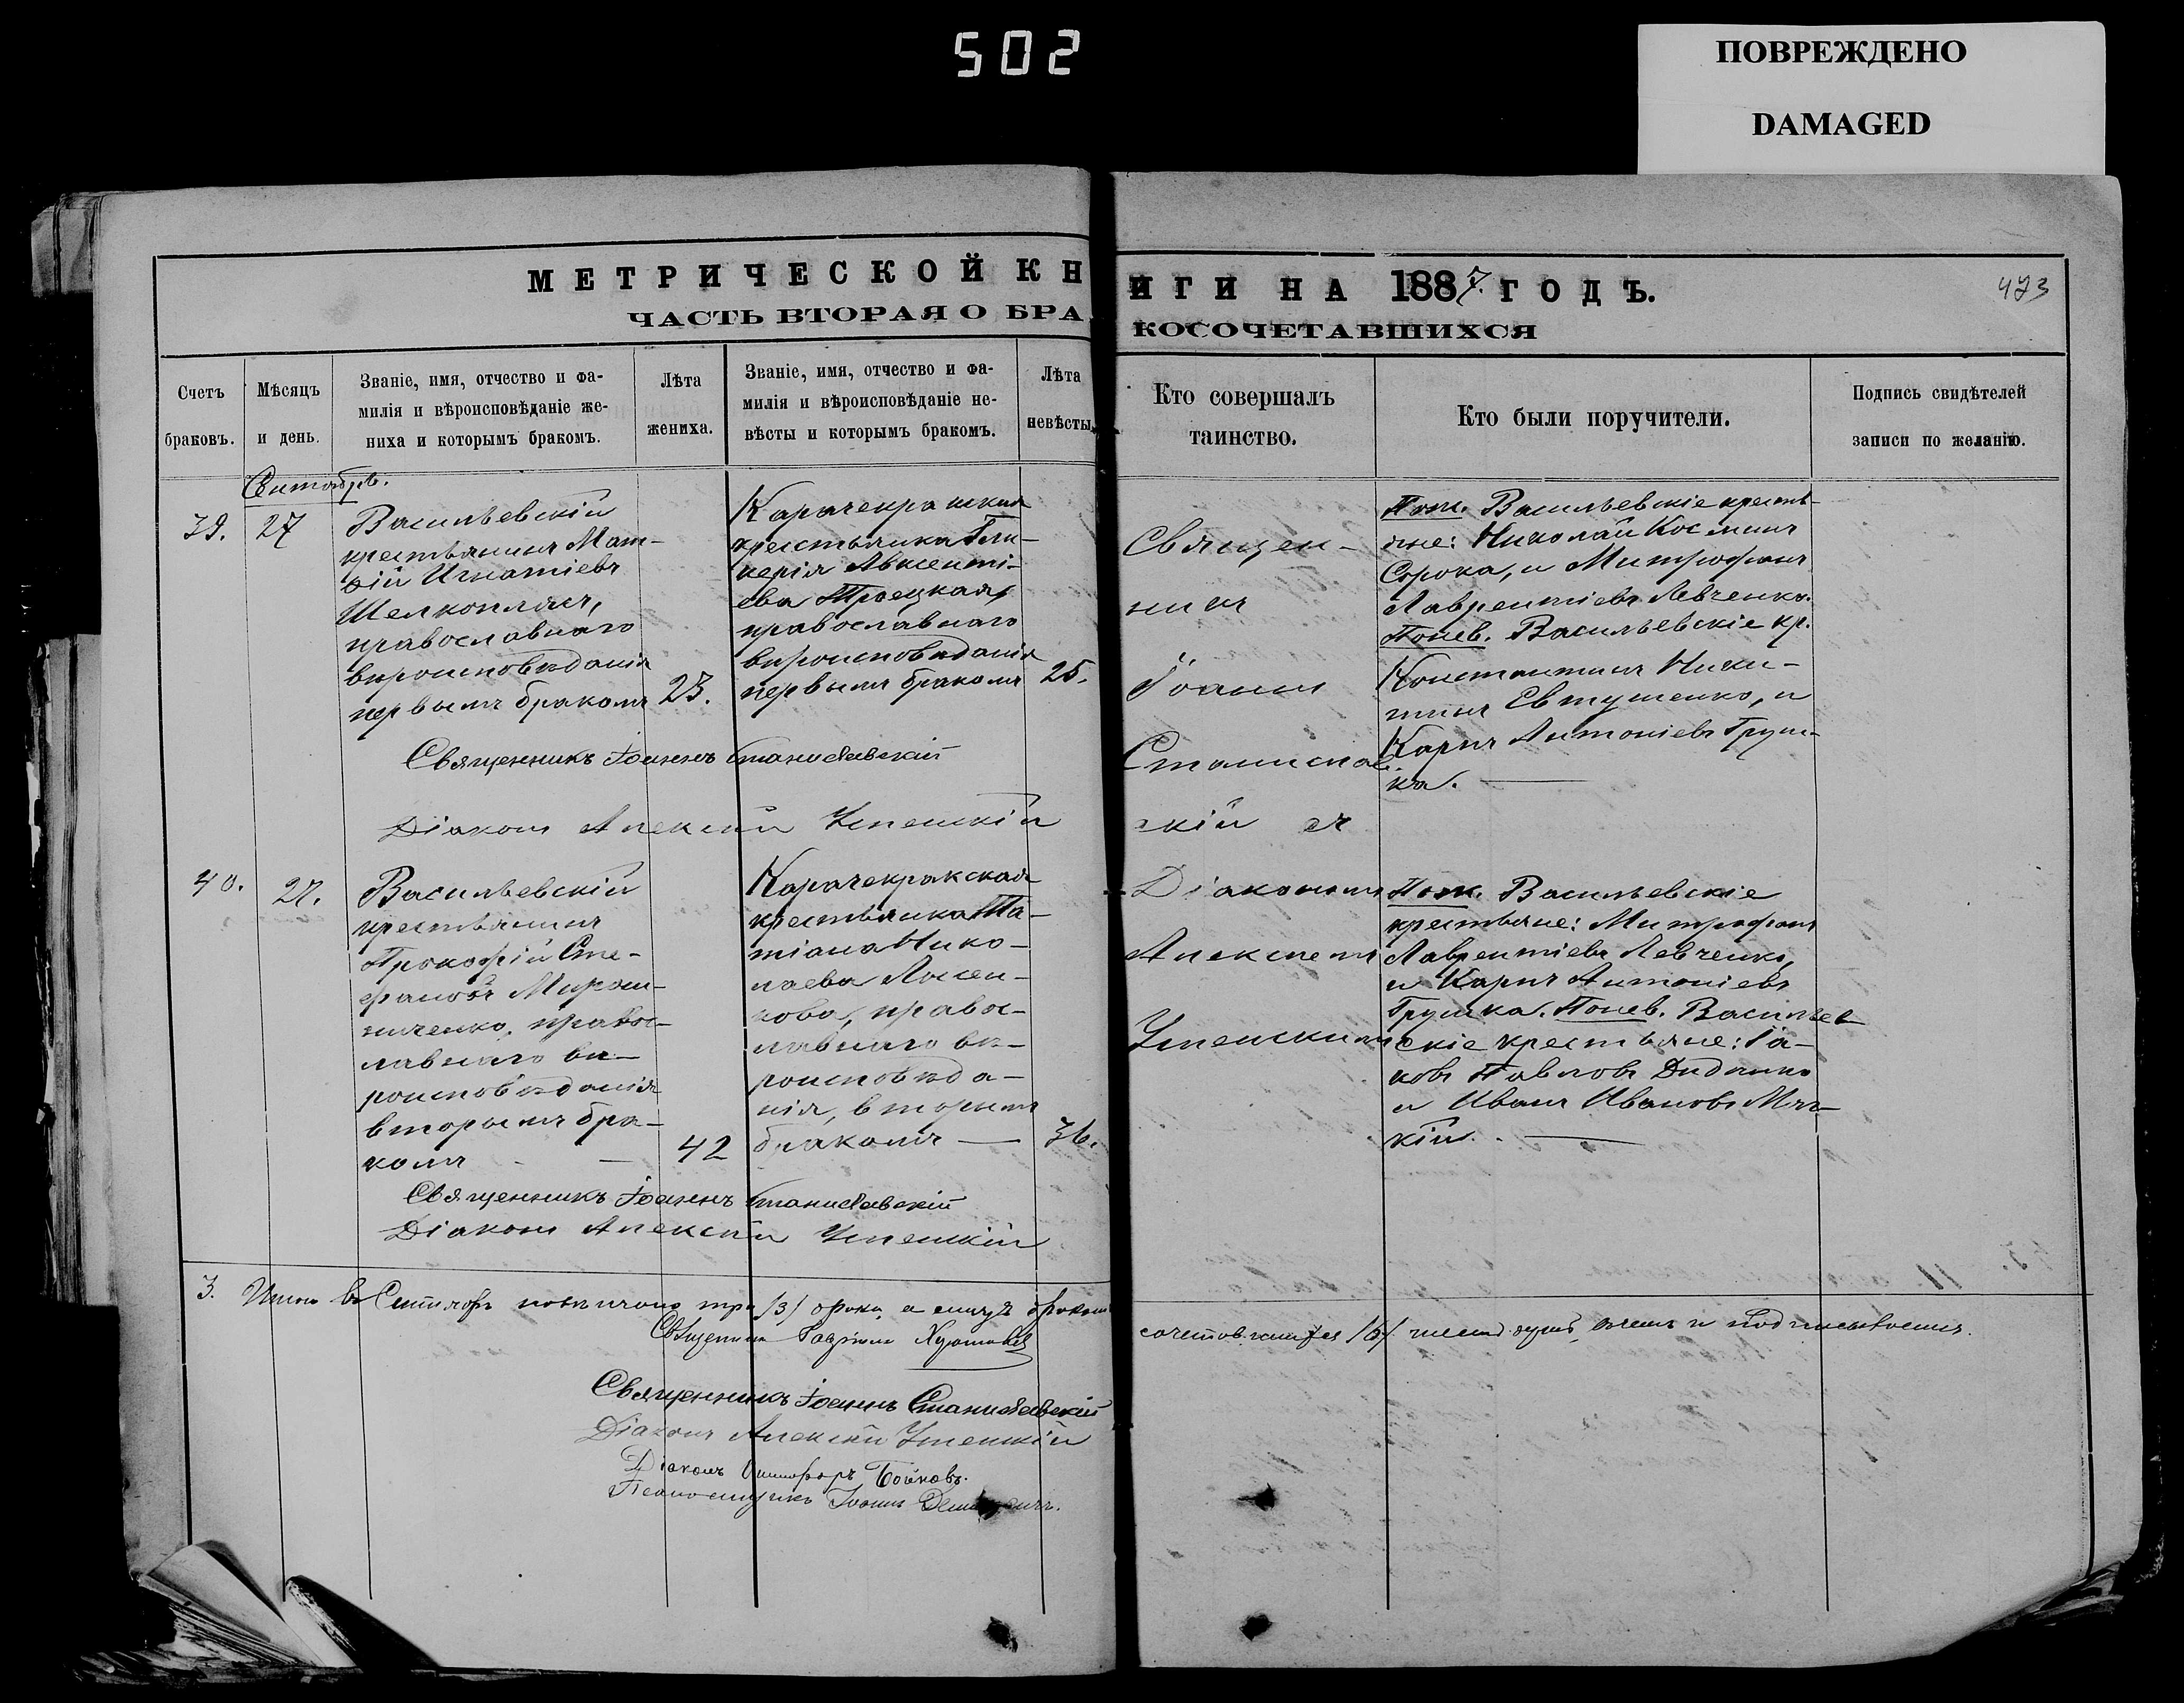 502
ПОВРЕЖДЕНО
DAMAGED
МЕТРИЧЕСКОЙ КНИГИ НА 1887 ГОДЪ.
473
ЧАСТЬ ВТОРАЯ О БРАКОСОЧЕТАВШИХСЯ
Счетъ
браковъ.
Мѣсяцъ
и день.
Званіе, имя, отчество и фа-
милія и вѣроисповѣданіе же-
ниха и которымъ бракомъ.
Лѣта
жениха.
Званіе, имя, отчество и фа-
милія и вѣроисповѣданіе не-
вѣсты и которымъ бракомъ.
Лѣта
невѣсты.
Кто совершалъ
таинство.
Кто были поручители.
Подпись свидѣтелей
записи по желанію.
Сентябрь.
39.
27
Васильевскій
крестьянинъ Мат-
ѳій Игнатіевъ
Шелкоплясъ,
православнаго
вѣроисповѣданія
первымъ бракомъ
23.
Карачекракская
крестьянка Гли-
керія Авксенті-
ева Троецкая,
православнаго
вѣроисповѣданія
первымъ бракомъ
25.
Священ-
никъ
Іоаннъ
Станислав-
скій съ
Діакономъ
Алексіемъ
Успенскимъ
Пож. Васильевскіе кресть-
яне: Николай Косминъ
Сорока, и Митрофанъ
Лаврентіевъ Левченко.
Понев. Васильевскіе кр.
Константинъ Ники-
тинъ Евтушенко, и
Карпъ Антоніевъ Груш-
ка.
Священникъ Іоаннъ Станиславскій
Діаконъ Алексій Успенскій
40.
27.
Васильевскій
крестьянинъ
Прокофій Сте-
фановъ Мирош-
ниченко, правос-
лавнаго вѣ-
роисповѣданія
вторымъ бра-
комъ
42
Карачекракская
крестьянка Та-
тіана Нико-
лаева Лысен-
кова, правос-
лавнаго вѣ-
роисповѣда-
нія, вторымъ
бракомъ
36.
Пож. Васильевскіе
крестьяне: Митрофанъ
Лаврентіевъ Левченко,
и Карпъ Антоніевъ
Грушка. Понев. Васильев-
скіе крестьяне: Іа-
ковъ Павловъ Диденко
и Иванъ Ивановъ Мяг-
кій.
Священникъ Іоаннъ Станиславскій
Діаконъ Алексій Успенскій
3. Итого въ Сентябрѣ повѣнчано три /3/ брака, а лицъ бракомъ
сочетавшихся /6/ шесть душъ, въ чемъ и подписываемся.
Священникъ
Священникъ Іоаннъ Станиславскій
Діаконъ Алексій Успенскій
Діаконъ Бойковъ.
Псаломщикъ Іоаннъ